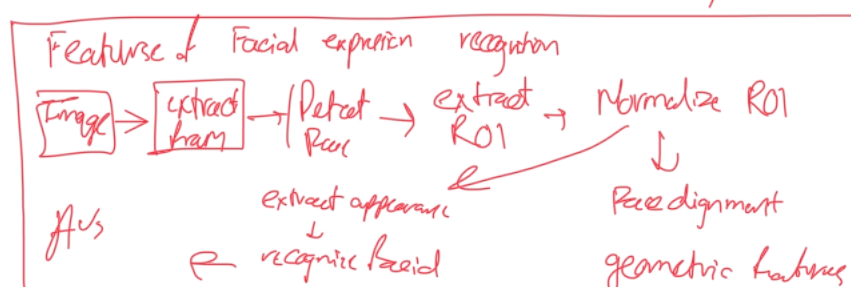 Features of Facial expression recognition
Image → extract fram → Detect Face → extract ROI → Normalize ROI
extract appearance
Face alignment
AUs
recognize facial
geometric features